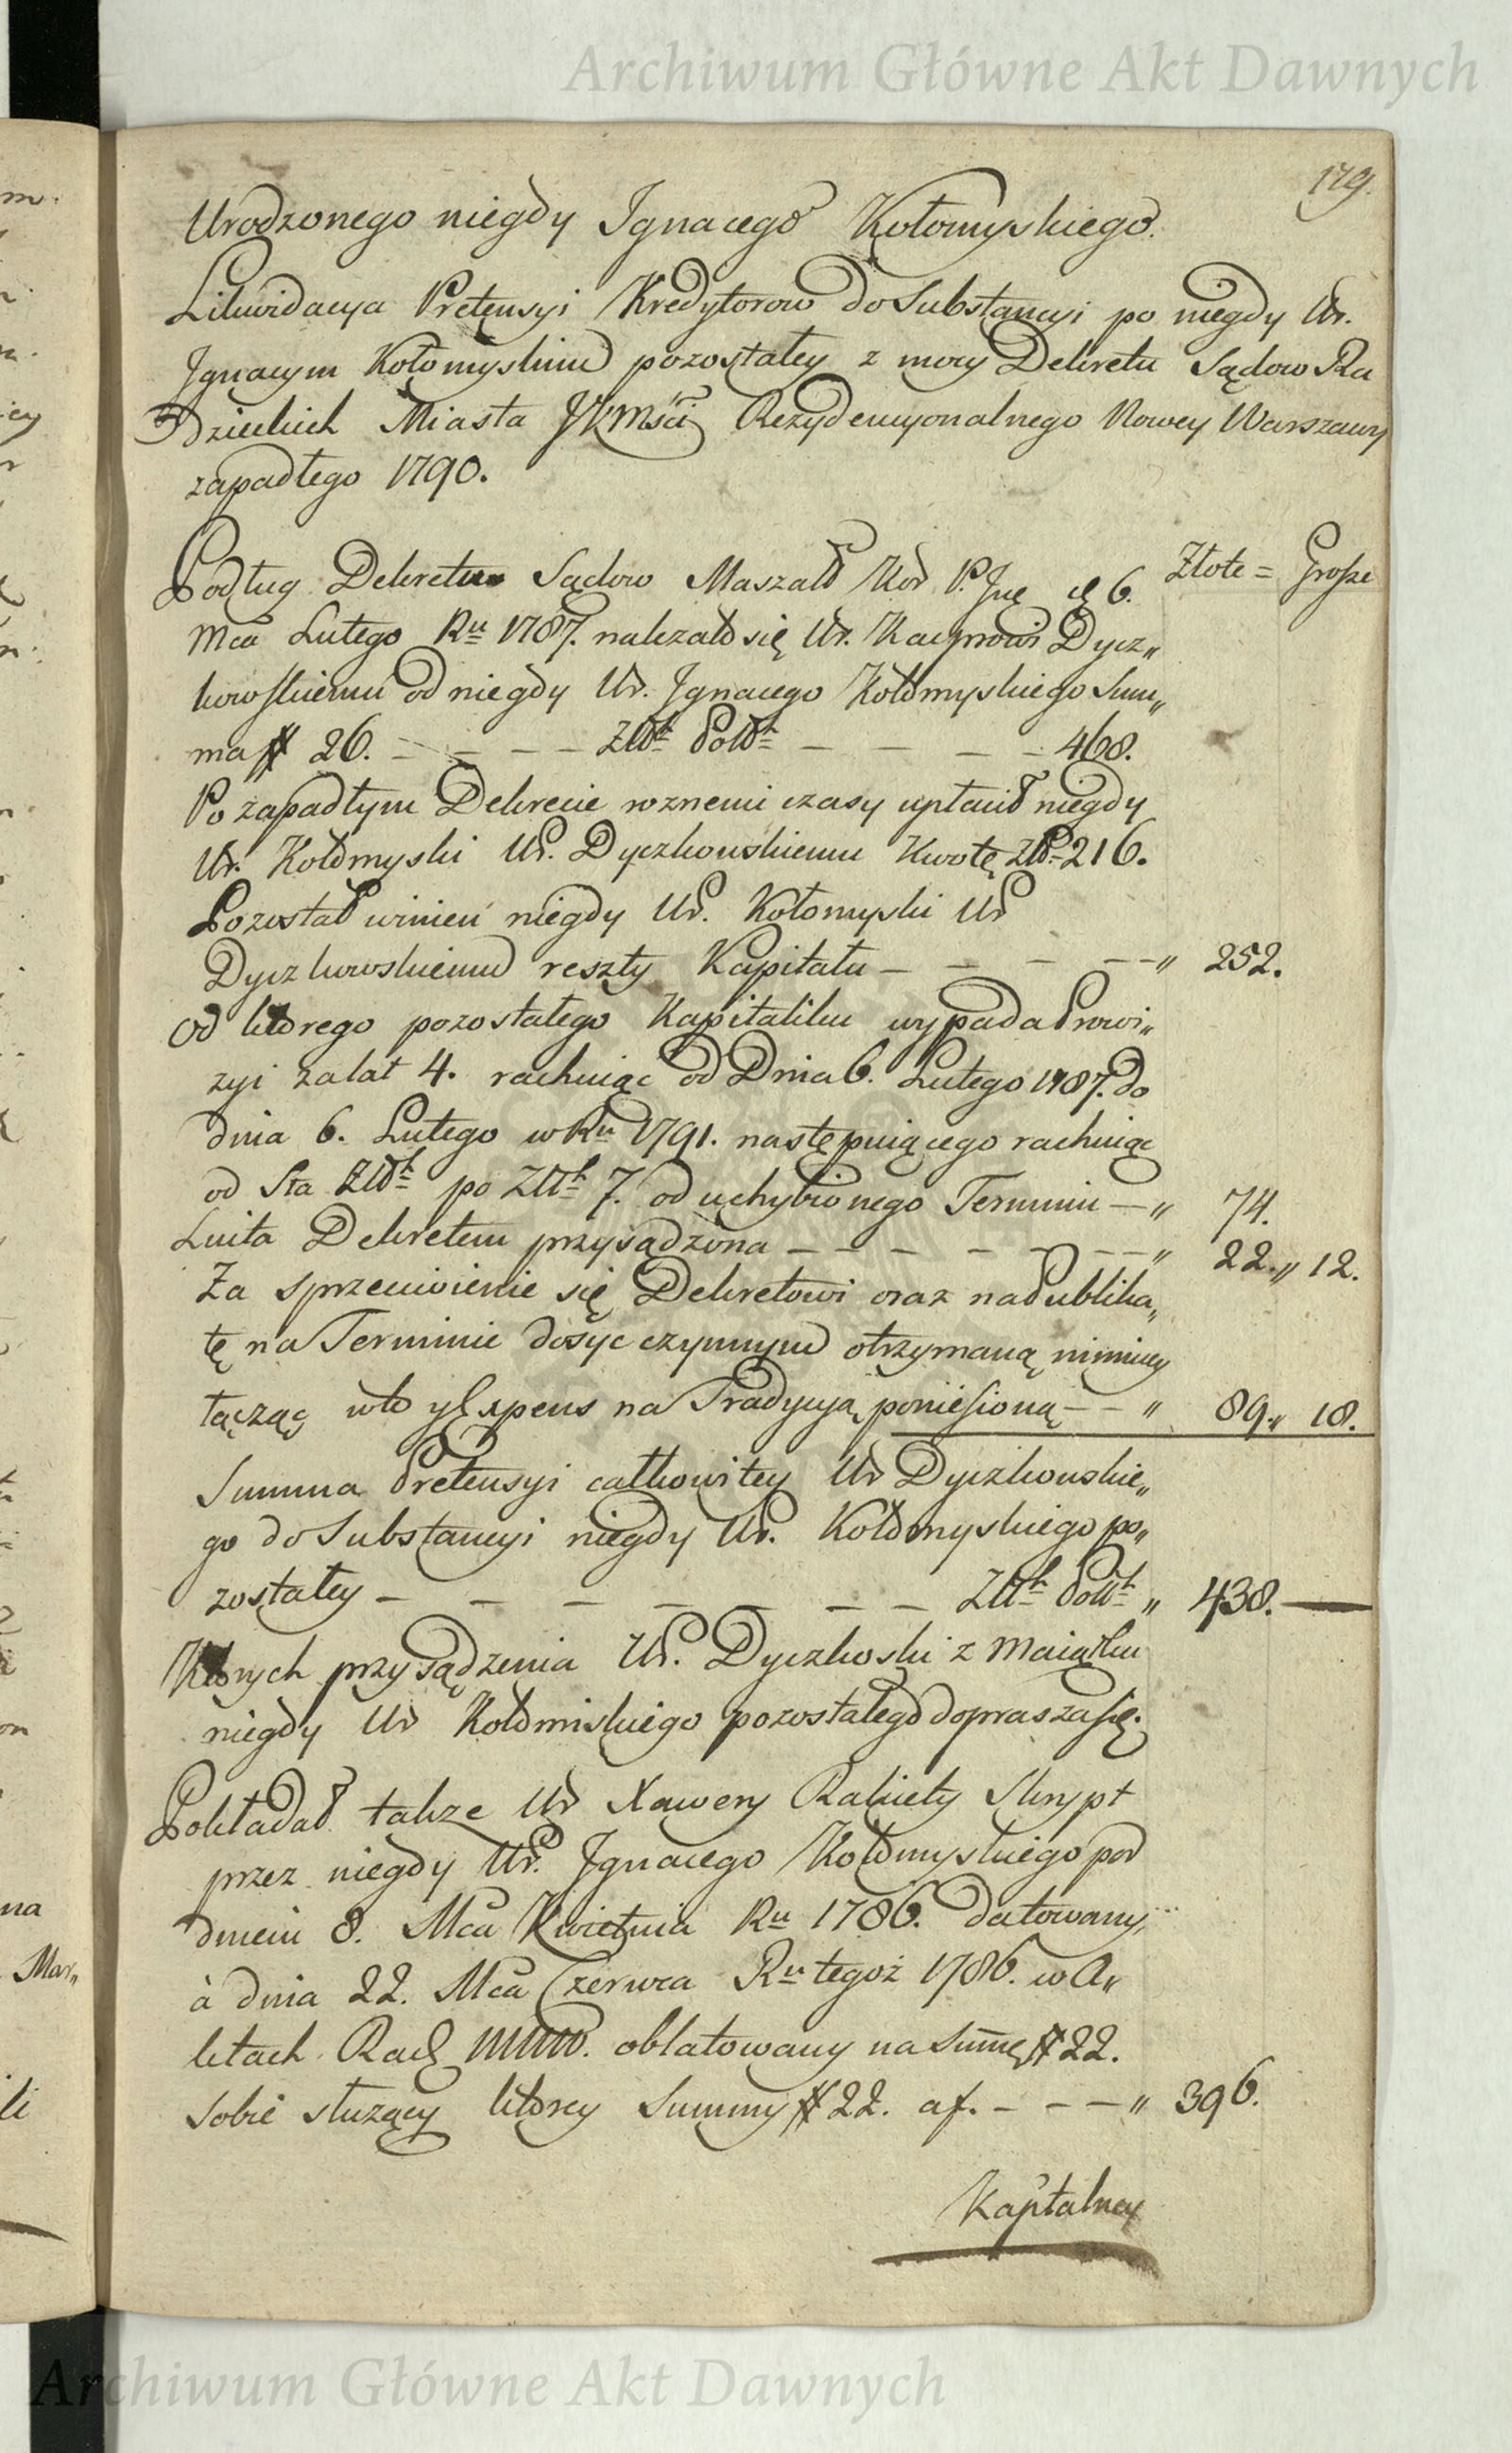 Archiwum Główne Akt Dawnych
179.
Urodzonego niegdy Ignacego Kołomyskiego.
Likwidacya Pretensyi Kredytorow do Substancyi po niegdy Ur.
Ignacym Kołomyskim pozostałey z mocy Dekretu Sądow Ra
Dzieckich Miasta JKMści Rezydencyonalnego Nowey Warszawy
zapadłego 1790.
Złote = Grosze
Podług Dekretu Sądow Maszałł Kor P. 6.
Mca Lutego Ru 1787. należało się Ur. Dycz„
kowskiemu od niegdy Ur. Ignacego Kołomyskiego Sum„
ma # 26. – – – – Złłh Polłh – – – – 468.
Po zapadłym Dekrecie roznemi czasy upłacił niegdy
Ur. Kołomyski Ur. Dyczkowskiemu Kwotę Złł. 216.
Pozostał winien niegdy Ur. Kołomyski Ur
Dyczkowskiemu reszty Kapitału – – – – – „ 252.
od ktorego pozostałego Kapitaliku wypada Prowi„
zyi za lat 4. rachuiąc od Dnia 6. Lutego 1787. do
dnia 6. Lutego w Ru 1791. następuiącego rachuiąc
od Sta Złłh po Złłh 7. od uchybionego Terminu – „ 74.
Luita Dekretem przysądzona – – – – – – – „ 22. „ 12.
Za sprzeciwienie się Dekretowi oraz na Publika„
tę na Terminie dosyc czynnym otrzymaną nimniey
łącząc w to y Expens na Tradycyą poniesioną – – „ 89. „ 18.
Summa Pretensyi całkowitey Ur Dyczkowskie„
go do Substancyi niegdy Ur. Kołomyskiego po„
zostałey – – – – – – – Złłh Polłh „ 438. —
Ktorych przysądzenia Ur. Dyczkoski z Maiątku
niegdy Ur Kołomiskiego pozostałego doprasza się.
Pokładał także Ur Xawery Rakiety Skrypt
przez niegdy Ur. Ignacego Kołomyskiego pod
dniem 8. Mca Kwietnia Ru 1786. datowany,
à dnia 22. Mca Czerwca Ru tegoż 1786. w A„
ktach Rad oblatowany na Summę # 22.
sobie służący ktorey Summy # 22. af. – – – „ 396.
Kapitalney
Archiwum Główne Akt Dawnych